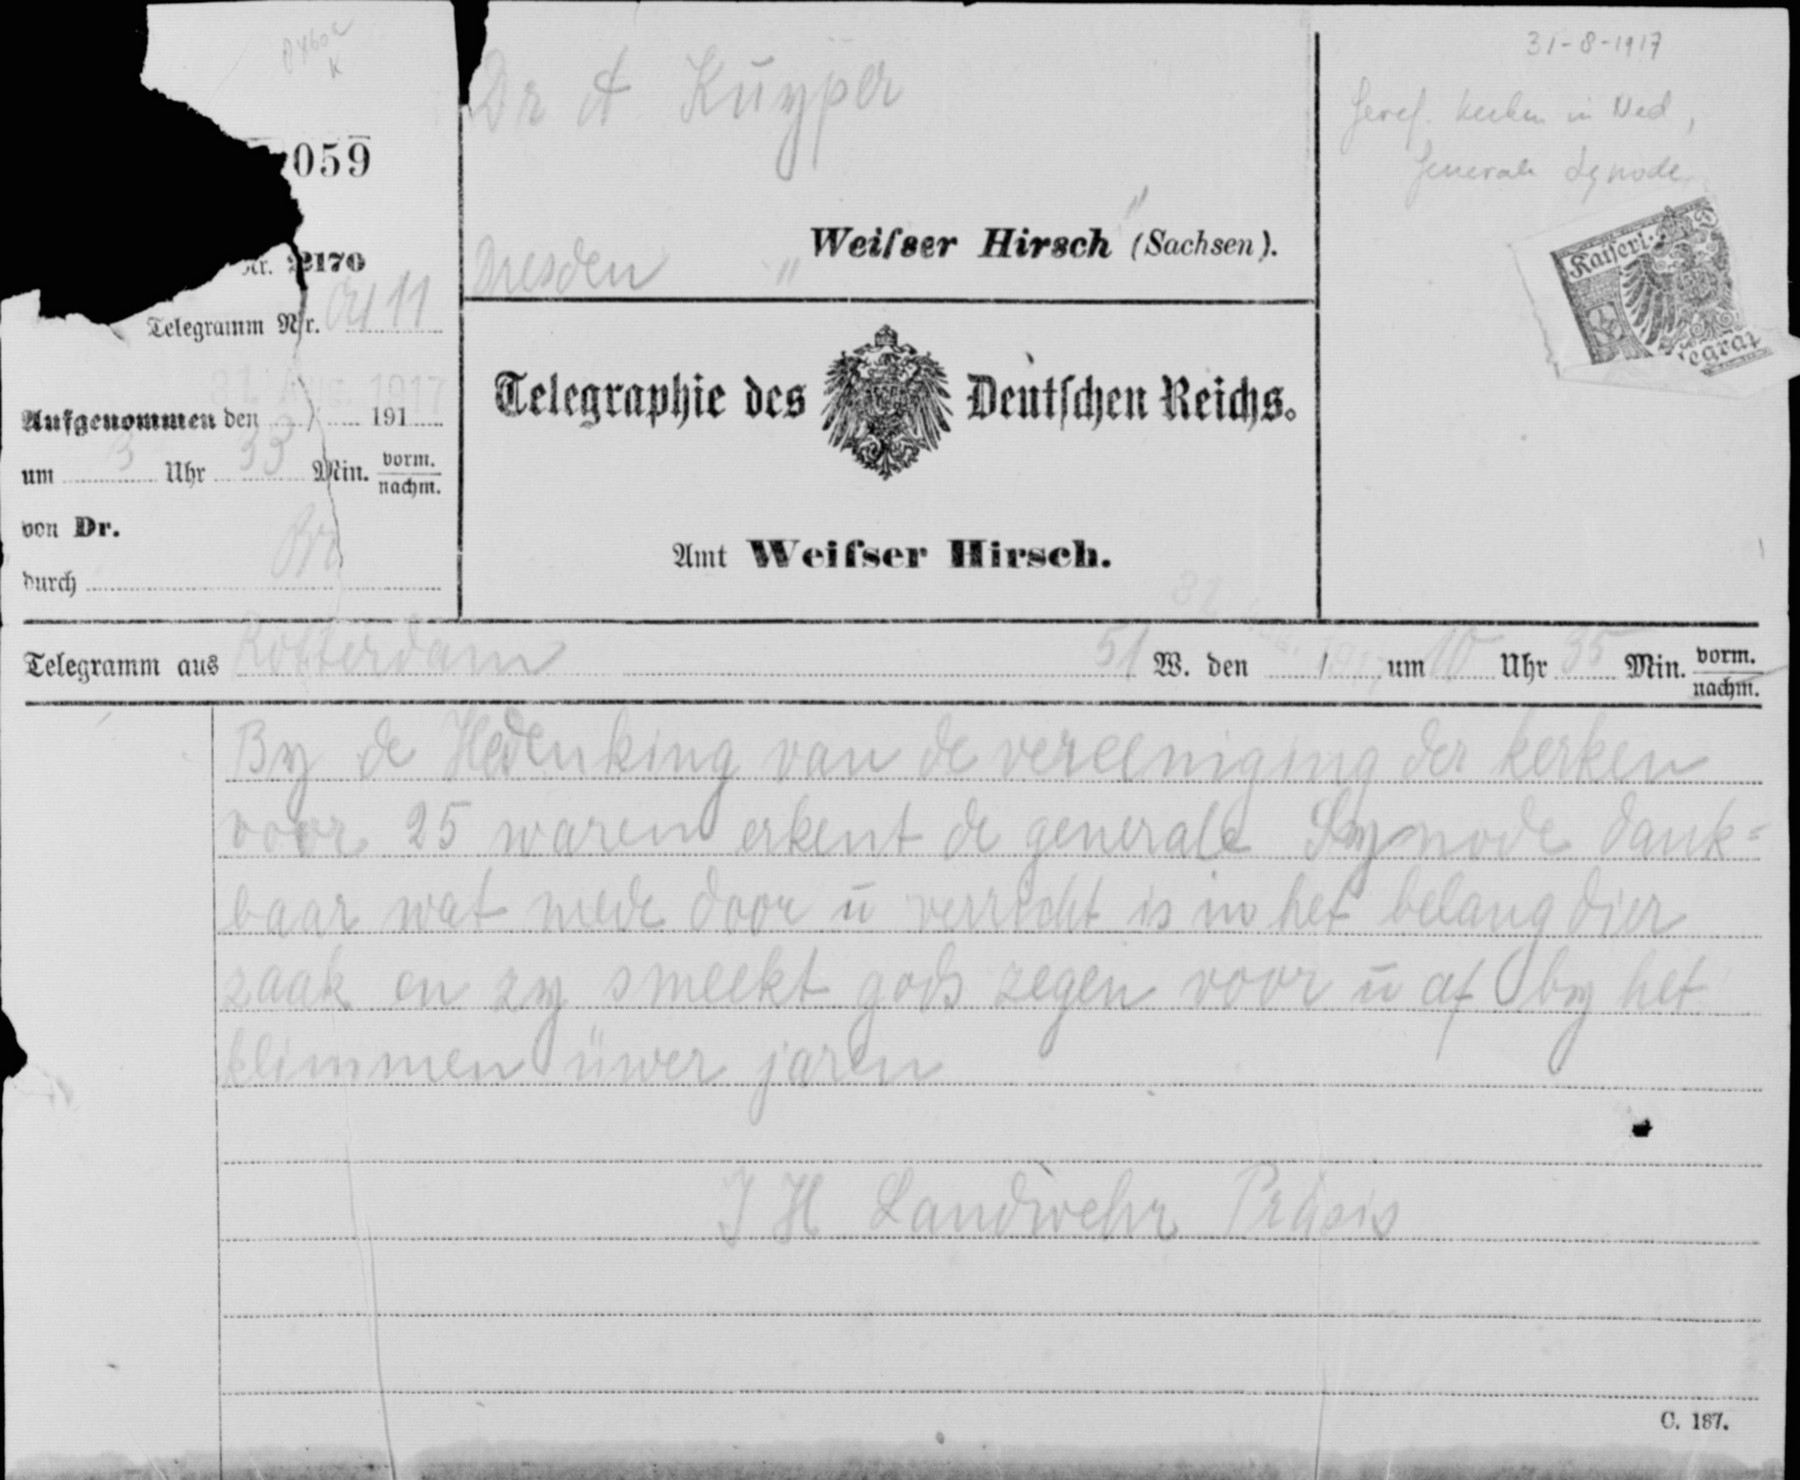 31-8-1917
Geref. kerken in Ned,
Generale Synode
Dr A Kuyper
059
Weiſser Hirsch (Sachsen).
Dresden
Nr. 2170
Telegramm Nr. 11
Kaiserl.
Telegraphie des Deutſchen Reichs.
31. Aug. 1917
Aufgenommen den 191
um 3 Uhr 33 Min. vorm.
nachm.
von Dr.
durch
Amt Weiſser Hirsch.
Telegramm aus Rotterdam 51 W. den / um 10 Uhr 35 Min. vorm.
nachm.
By de Hedenking van de vereeniging der kerken
voor 25 waren erkent de generale Synode dank=
baar wat mede door ū verricht is in het belang dier
zaak en zy smeekt gods zegen voor ū af by het
klimmen ūwer jaren
J H Landwehr Präsis
C. 187.